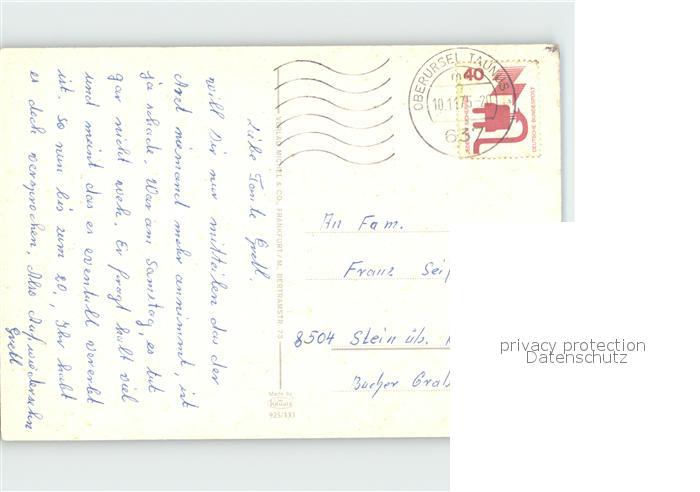 Liebe Tante Gretl.
will Dir nur mitteilen das der
Arzt niemand mehr annimmt, ist
ja schade. War am Samstag, es tut
gar nicht weh. Er fragt halt viel
und meint das es eventuell vererbt
ist. So nun bis zum 20., Ihr habt
es doch versprochen, Also Aufwiedersehn
Gretl
VERLAG MICHEL & CO., FRANKFURT/M., BERTRAMSTR. 75
Made by
KRÜGER
925/131
OBERURSEL, TAUNUS
10.11.75-20
637
40
DEUTSCHE BUNDESPOST
An Fam.
Franz Seip
8504 Stein üb.
Bucher
privacy protection
Datenschutz